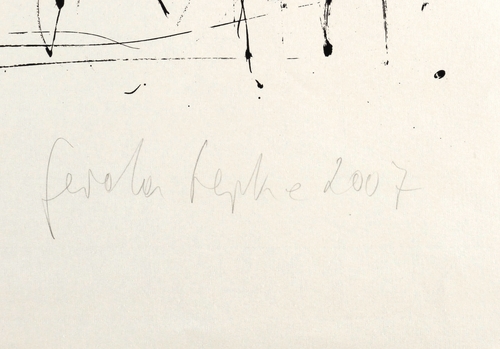 Gerda Lepke 2007